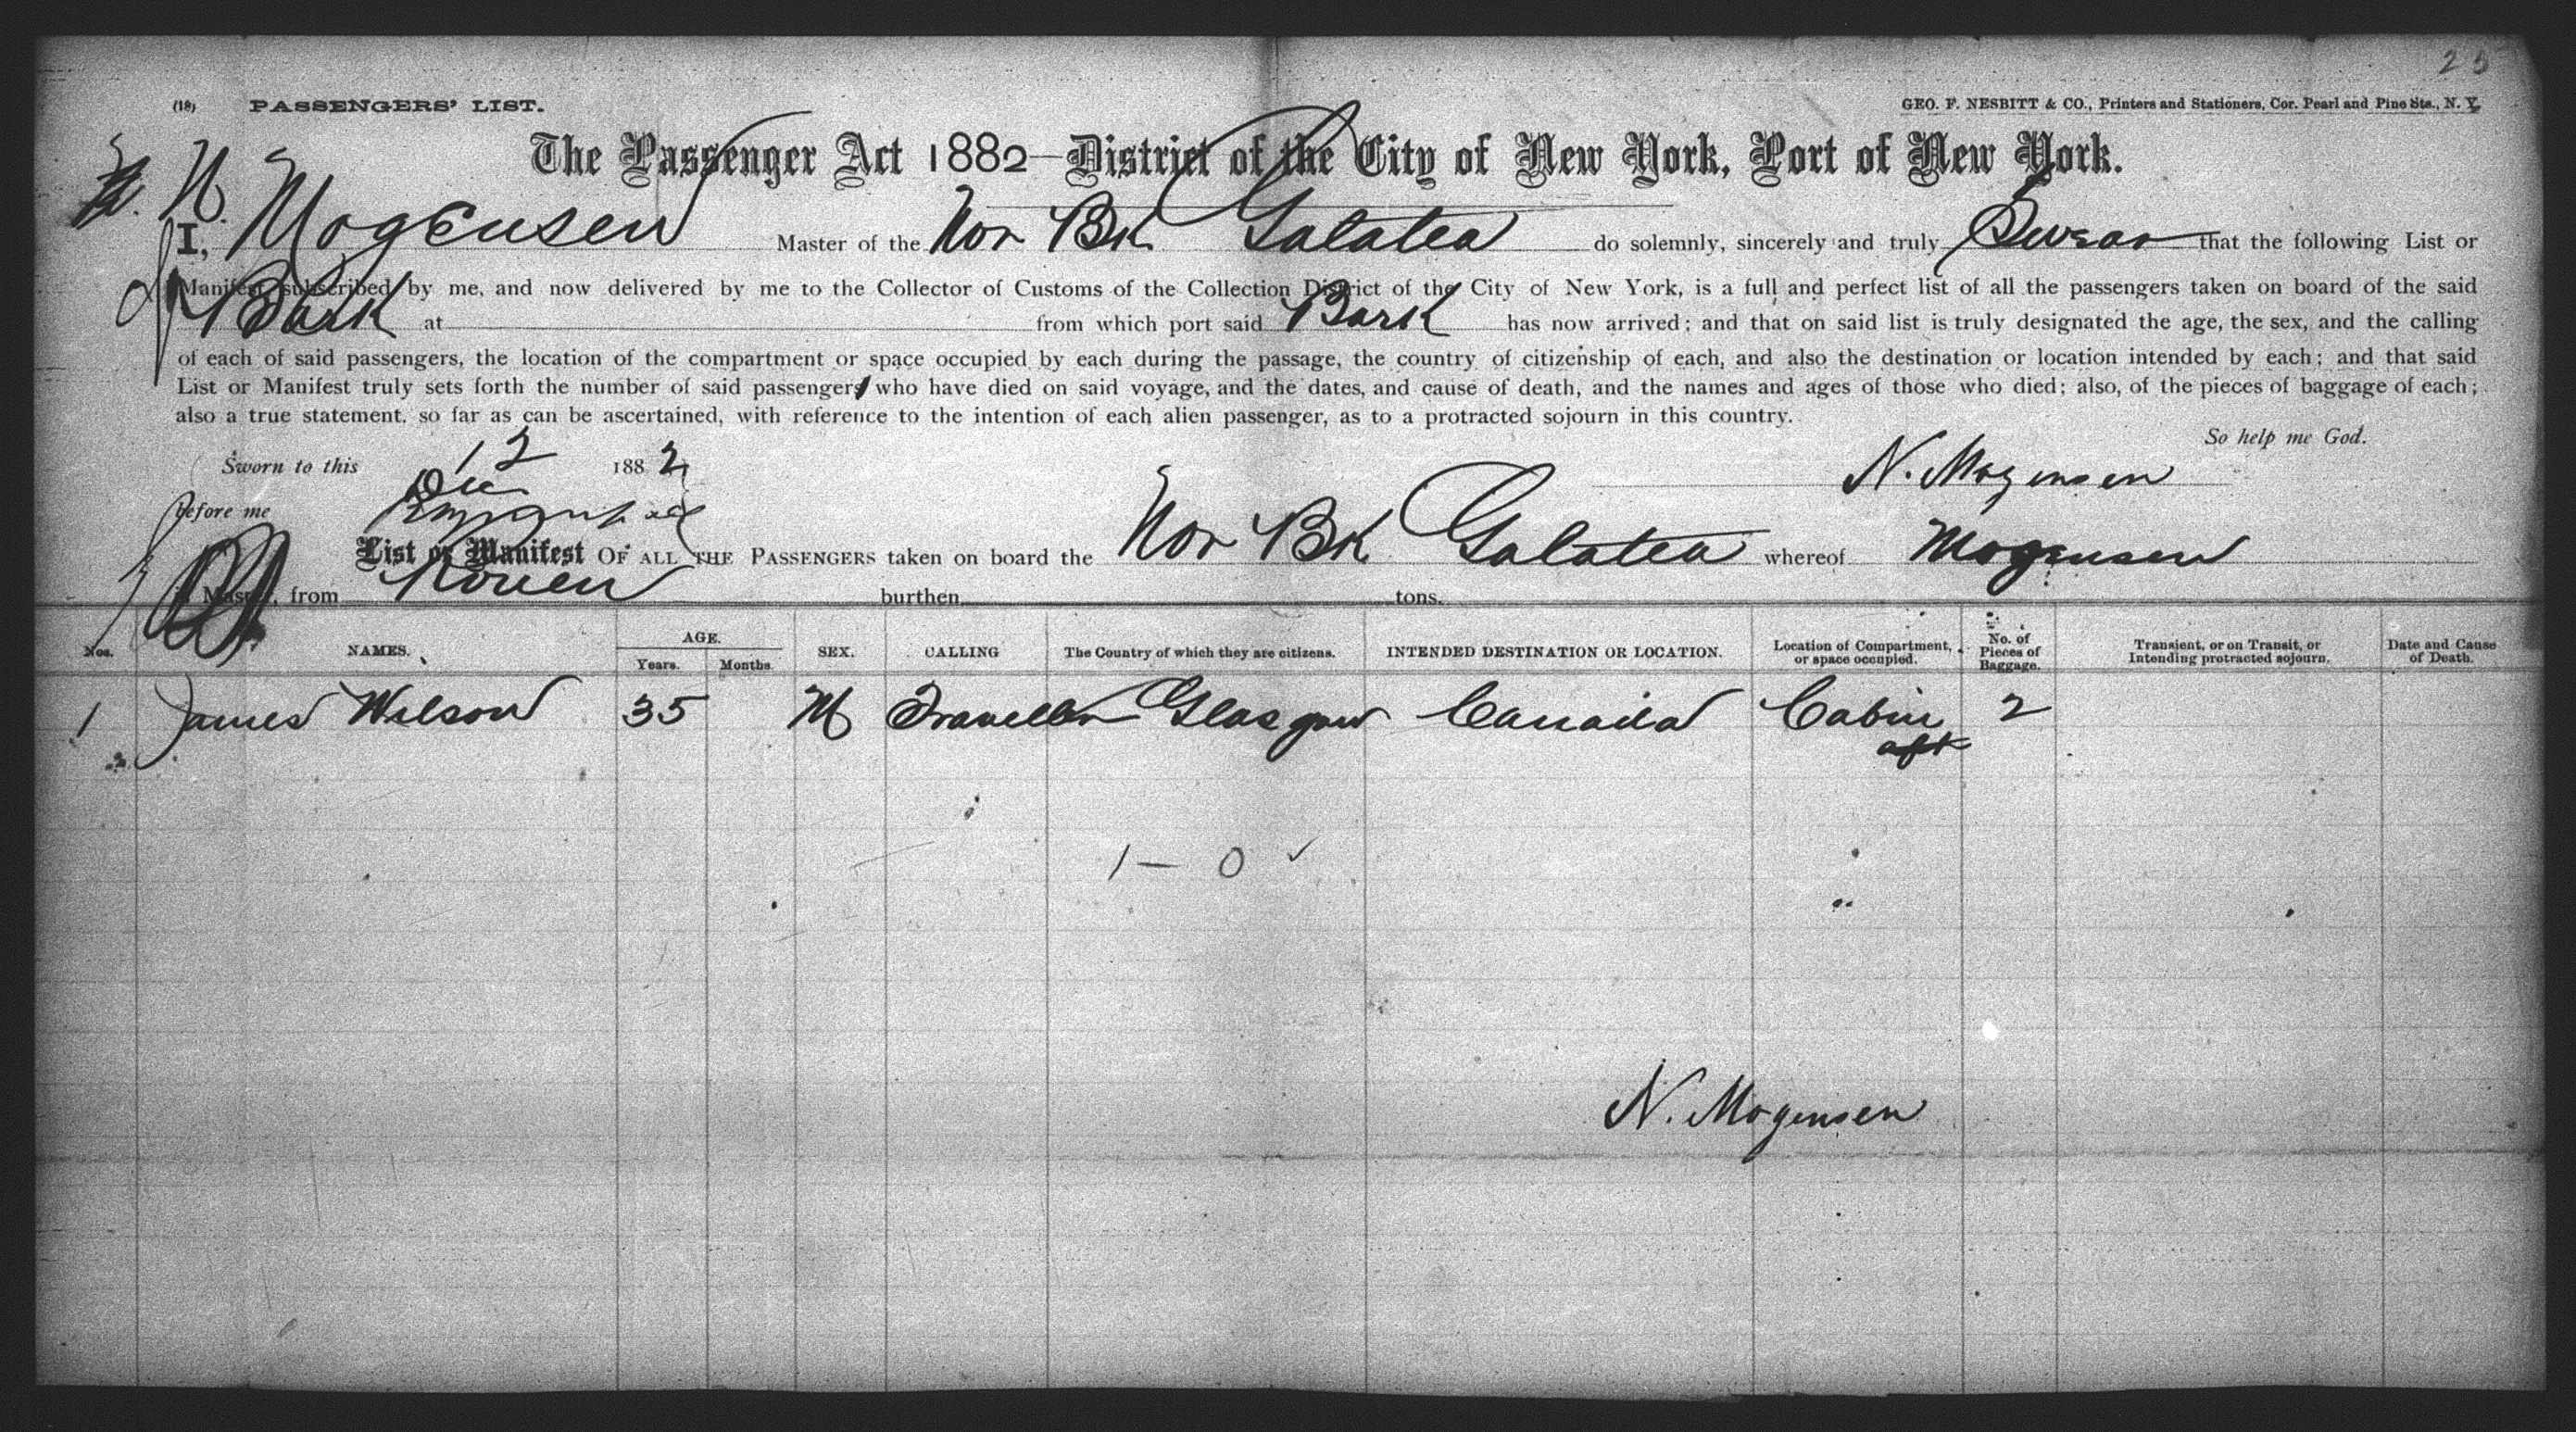 25
(18) PASSENGERS' LIST. GEO. F. NESBITT & CO., Printers and Stationers, Cor. Pearl and Pine Sts., N. Y.
The Passenger Act 1882—District of the City of New York, Port of New York.
N.
I, Mogensen Master of the Nor Bk Galatea do solemnly, sincerely and truly Swear that the following List or
Manifest, subscribed by me, and now delivered by me to the Collector of Customs of the Collection District of the City of New York, is a full and perfect list of all the passengers taken on board of the said
Bark at from which port said Bark has now arrived; and that on said list is truly designated the age, the sex, and the calling
of each of said passengers, the location of the compartment or space occupied by each during the passage, the country of citizenship of each, and also the destination or location intended by each; and that said
List or Manifest truly sets forth the number of said passengers who have died on said voyage, and the dates, and cause of death, and the names and ages of those who died; also, of the pieces of baggage of each;
also a true statement, so far as can be ascertained, with reference to the intention of each alien passenger, as to a protracted sojourn in this country.
So help me God.
Sworn to this 12 1882 N. Mogensen
Dec
before me
List or Manifest OF ALL THE PASSENGERS taken on board the Nor Bk Galatea whereof Mogensen
is Master, from Rouen burthen tons.
Nos. NAMES. AGE. Years. Months. SEX. CALLING The Country of which they are citizens. INTENDED DESTINATION OR LOCATION. Location of Compartment, or space occupied. No. of Pieces of Baggage. Transient, or on Transit, or Intending protracted sojourn. Date and Cause of Death.
1 James Wilson 35 M Traveller Glasgow Canada Cabin 2
aft
1 — 0 ✓
N. Mogensen